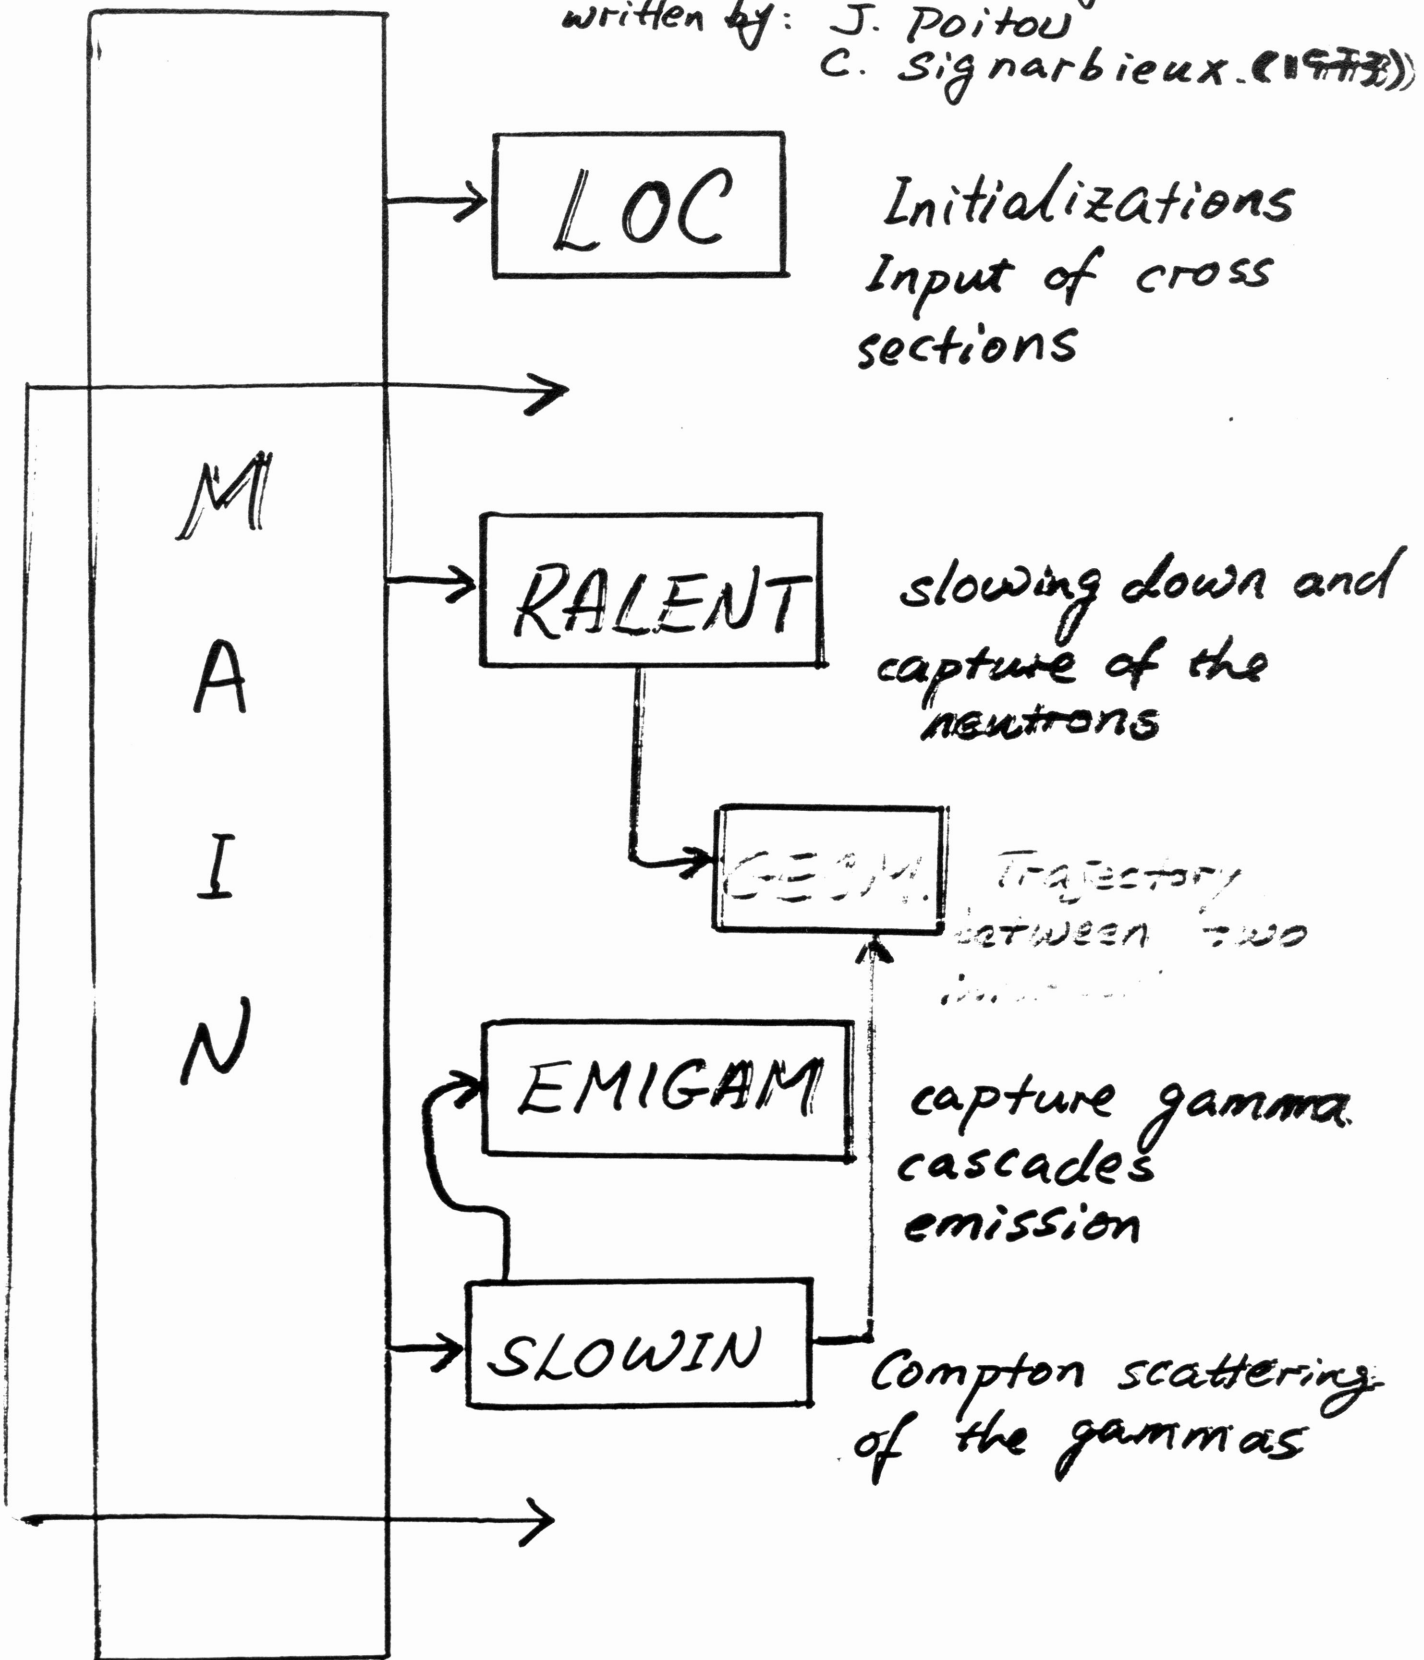 written by: J. Poitou
C. Signarbieux.
LOC
Initializations
Input of cross
sections
MAIN
RALENT
slowing down and
capture of the
neutrons
GEOM.
Trajectory
between two
EMIGAM
capture gamma
cascades
emission
SLOWIN
Compton scattering
of the gammas